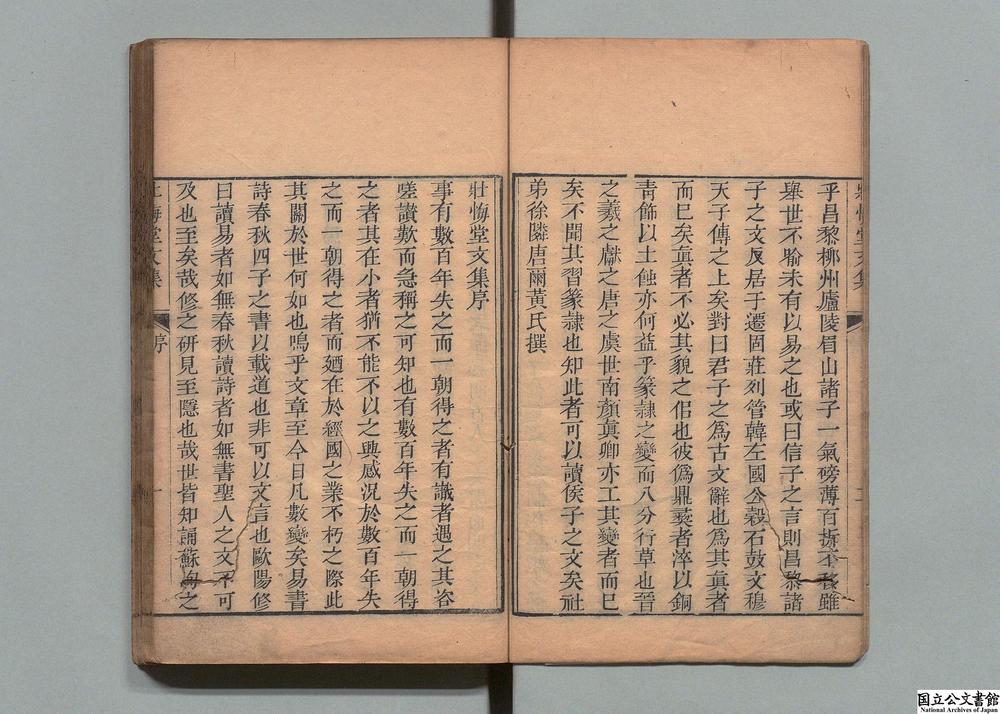 乎昌黎柳州廬陵眉山諸子一氣磅薄百折不移雖
舉世不喻未有以易之也或曰信子之言則昌黎諸
子之文反居于遷固莊列管韓左國公穀石鼓文穆
天子傳之上矣對曰君子之爲古文辭也爲其眞者
而已矣眞者不必其貌之佀也彼僞鼎彝者淬以銅
靑飾以土蝕亦何益乎篆隷之變而八分行草也晉
之羲之獻之唐之虞世南顏眞卿亦工其變者而已
矣不聞其習篆隷也知此者可以讀侯子之文矣社
弟徐隣唐爾黃氏撰
壯悔堂文集序
事有數百年失之而一朝得之者有識者遇之其咨
嗟讚歎而急稱之可知也有數百年失之而一朝得
之者其在小者猶不能不以之興感况於數百年失
之而一朝得之者而廼在於經國之業不朽之際此
其關於世何如也嗚乎文章至今日凡數變矣易書
詩春秋四子之書以載道也非可以文言也歐陽修
曰讀易者如無春秋讀詩者如無書聖人之文不可
及也至矣哉修之研見至隱也哉世皆知誦蘇洵之
壯悔堂文集
序
一
国立公文書館
National Archives of Japan